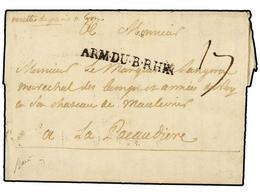 A Monsieur
ARM.DU.B-RHIN
17
Monsieur Le Marquis Langeron
marechal des camps et armées du Roy
en son chateau de Maulevrier
a La Pacaudière